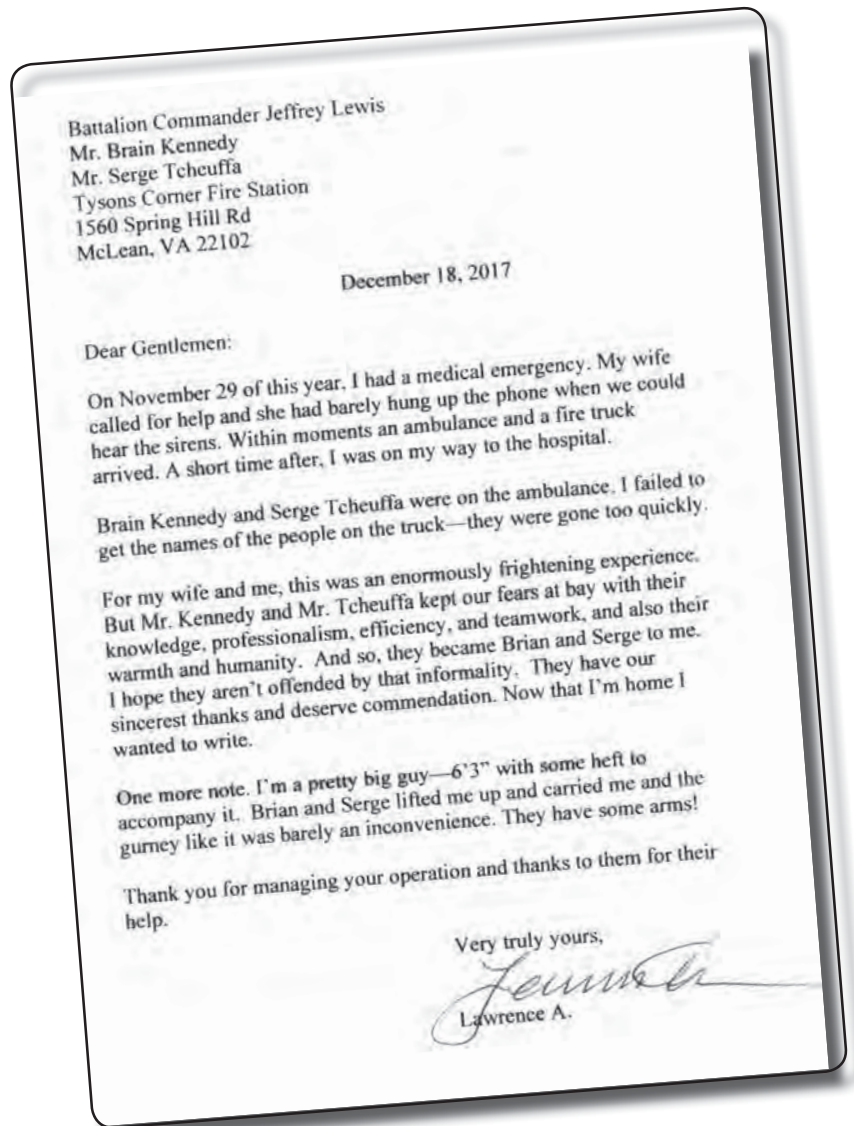 Battalion Commander Jeffrey Lewis
Mr. Brain Kennedy
Mr. Serge Tcheuffa
Tysons Corner Fire Station
1560 Spring Hill Rd
McLean, VA 22102
December 18, 2017
Dear Gentlemen:
On November 29 of this year, I had a medical emergency. My wife
called for help and she had barely hung up the phone when we could
hear the sirens. Within moments an ambulance and a fire truck
arrived. A short time after, I was on my way to the hospital.
Brain Kennedy and Serge Tcheuffa were on the ambulance. I failed to
get the names of the people on the truck—they were gone too quickly.
For my wife and me, this was an enormously frightening experience.
But Mr. Kennedy and Mr. Tcheuffa kept our fears at bay with their
knowledge, professionalism, efficiency, and teamwork, and also their
warmth and humanity. And so, they became Brian and Serge to me.
I hope they aren't offended by that informality. They have our
sincerest thanks and deserve commendation. Now that I'm home I
wanted to write.
One more note. I'm a pretty big guy—6'3" with some heft to
accompany it. Brian and Serge lifted me up and carried me and the
gurney like it was barely an inconvenience. They have some arms!
Thank you for managing your operation and thanks to them for their
help.
Very truly yours,
Lawrence A.